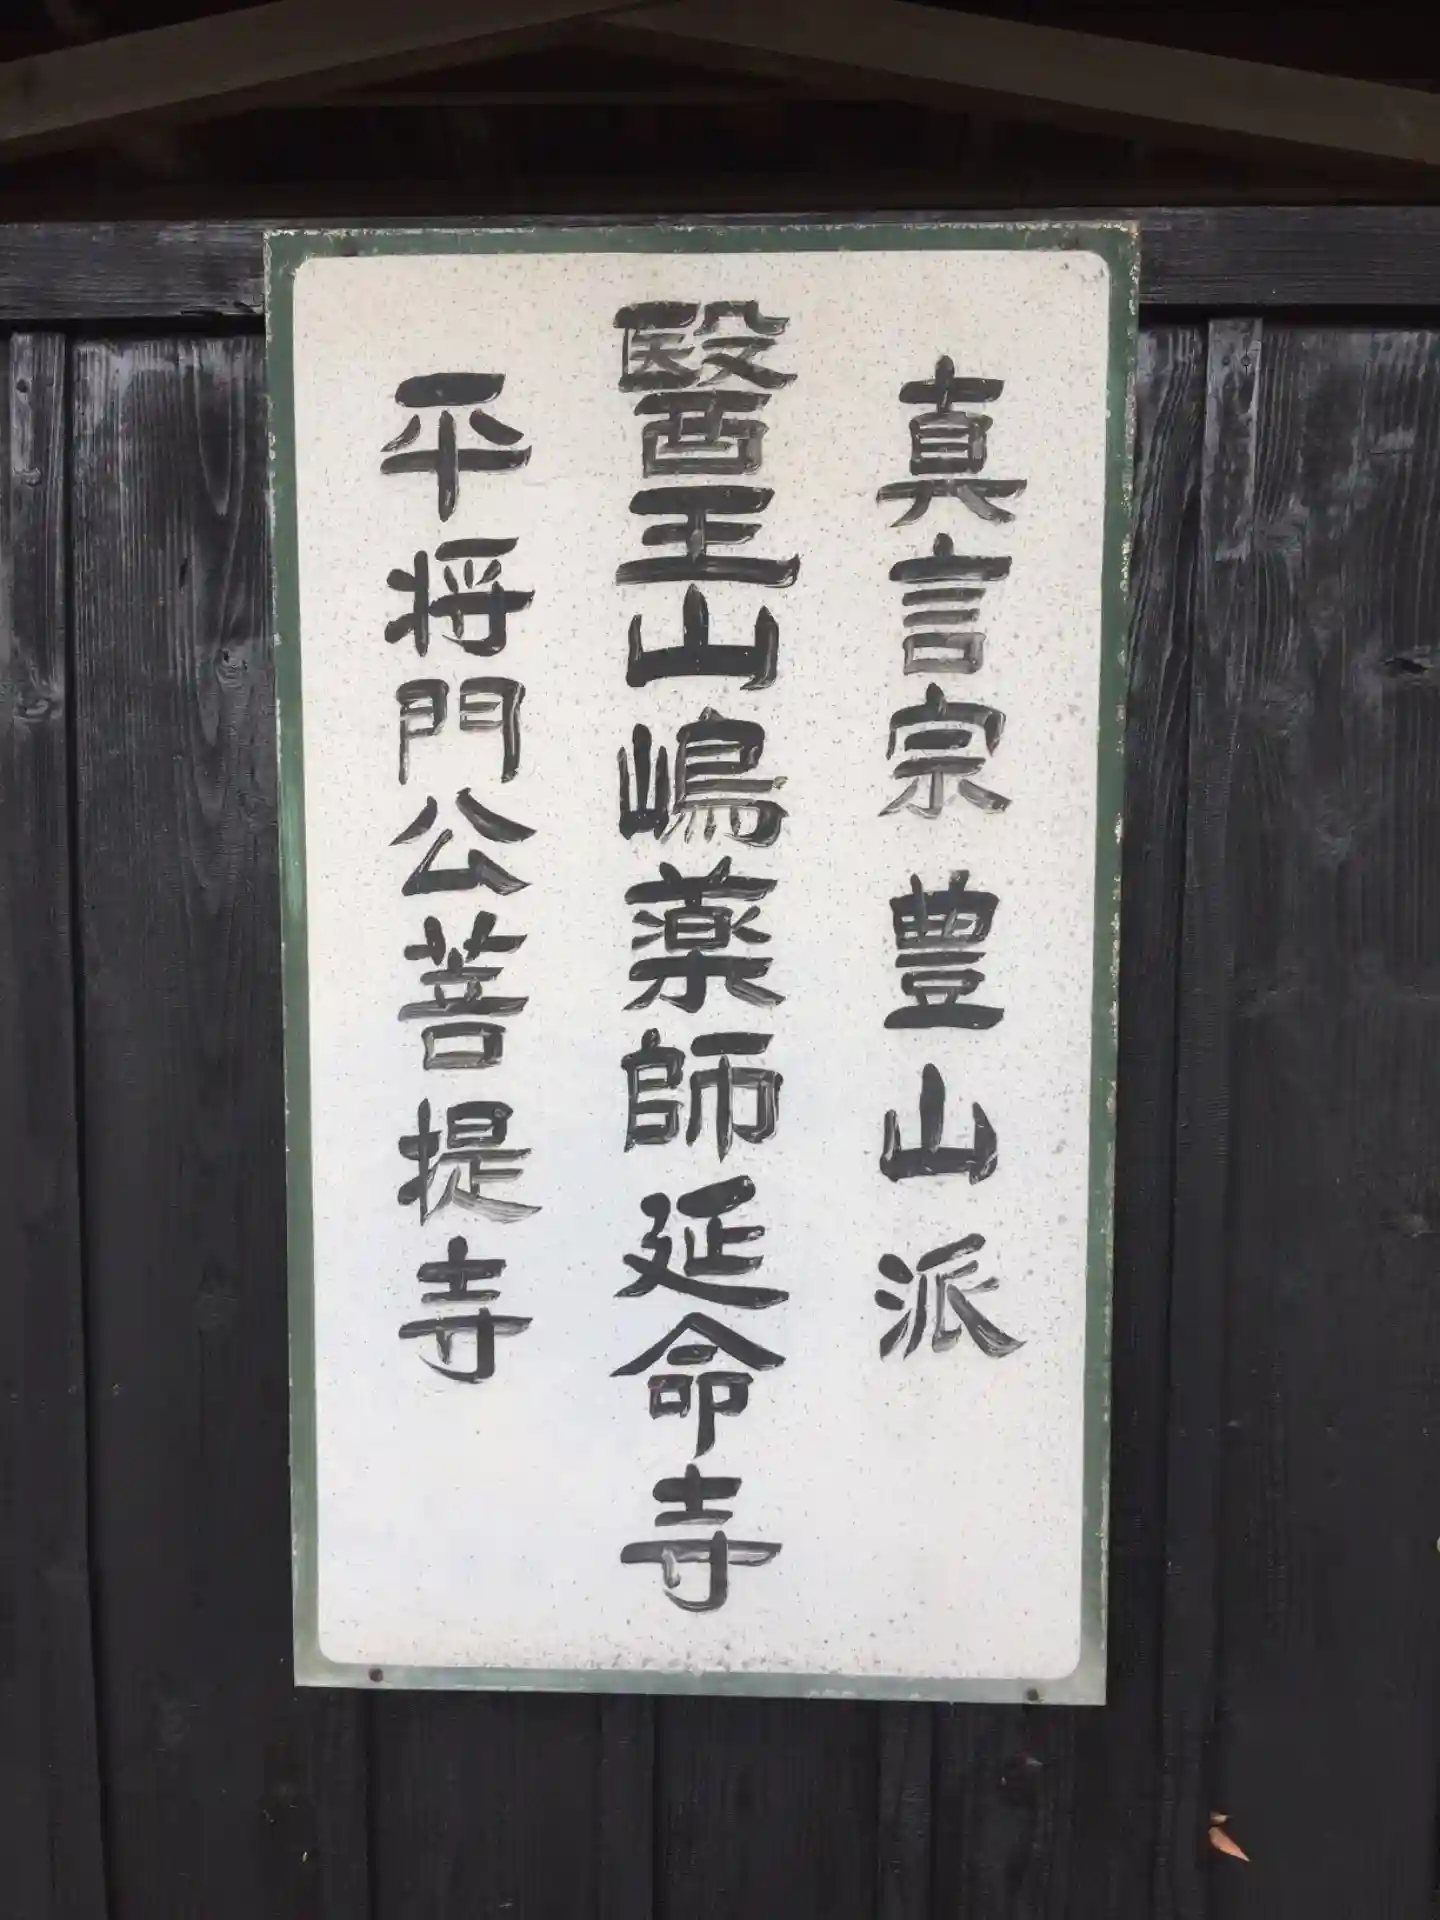 真言宗豊山派
醫王山嶋薬師延命寺
平将門公菩提寺